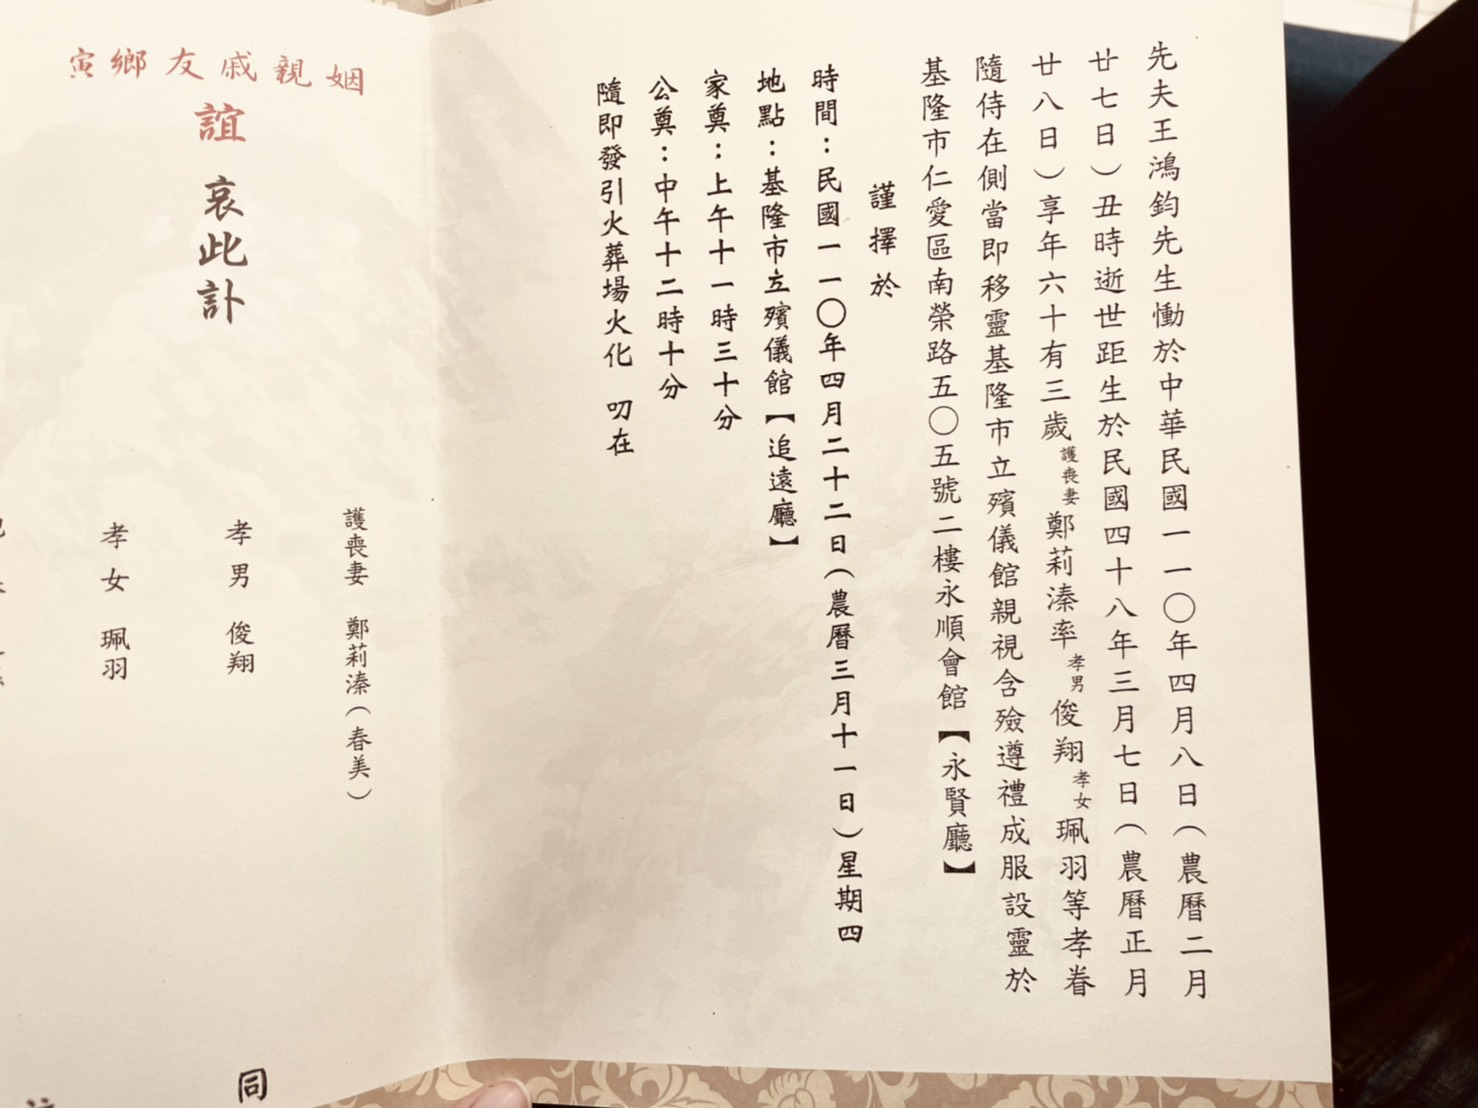 先夫王鴻鈞先生慟於中華民國一一〇年四月八日（農曆二月
廿七日）丑時逝世距生於民國四十八年三月七日（農曆正月
廿八日）享年六十有三歲護喪妻鄭莉溱率孝男俊翔孝女珮羽等孝眷
隨侍在側當即移靈基隆市立殯儀館親視含殮遵禮成服設靈於
基隆市仁愛區南榮路五〇五號二樓永順會館【永賢廳】
謹擇於
時間：民國一一〇年四月二十二日（農曆三月十一日）星期四
地點：基隆市立殯儀館【追遠廳】
家奠：上午十一時三十分
公奠：中午十二時十分
隨即發引火葬場火化 叨在
姻親戚友鄉寅
誼 哀此訃
護喪妻 鄭莉溱（春美）
孝男 俊翔
孝女 珮羽
同